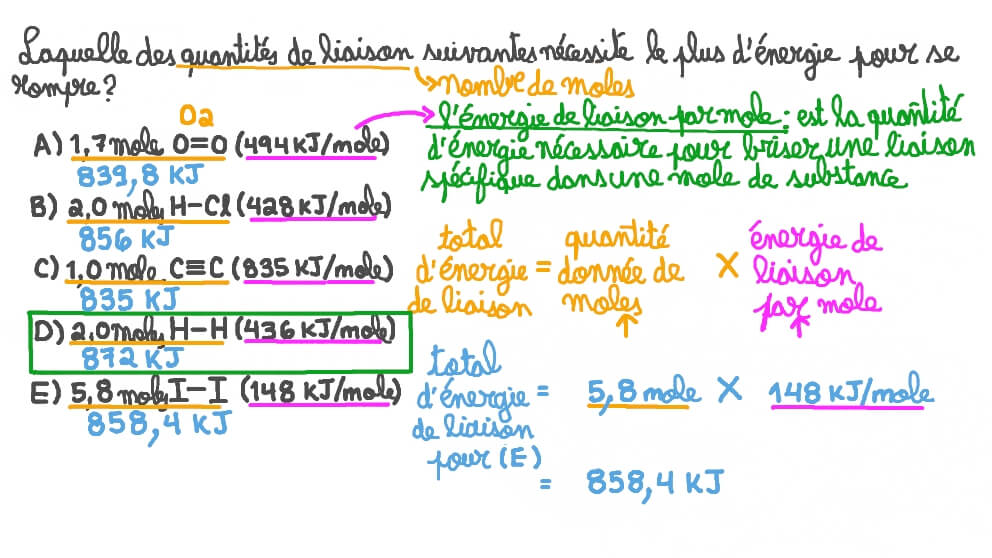 Laquelle des quantités de liaison suivantes nécessite le plus d'énergie pour se
rompre?
nombre de moles
O2
l'énergie de liaison par mole : est la quantité
d'énergie nécessaire pour briser une liaison
spécifique dans une mole de substance
A) 1,7 mole O=O (494 KJ/mole)
839,8 KJ
B) 2,0 moles H-Cl (428 KJ/mole)
856 KJ
C) 1,0 mole C≡C (835 KJ/mole)
835 KJ
D) 2,0 moles H-H (436 KJ/mole)
872 KJ
E) 5,8 moles I-I (148 KJ/mole)
858,4 KJ
total d'énergie de liaison = quantité donnée de moles X énergie de liaison par mole
total d'énergie de liaison pour (E) = 5,8 mole X 148 KJ/mole
= 858,4 KJ